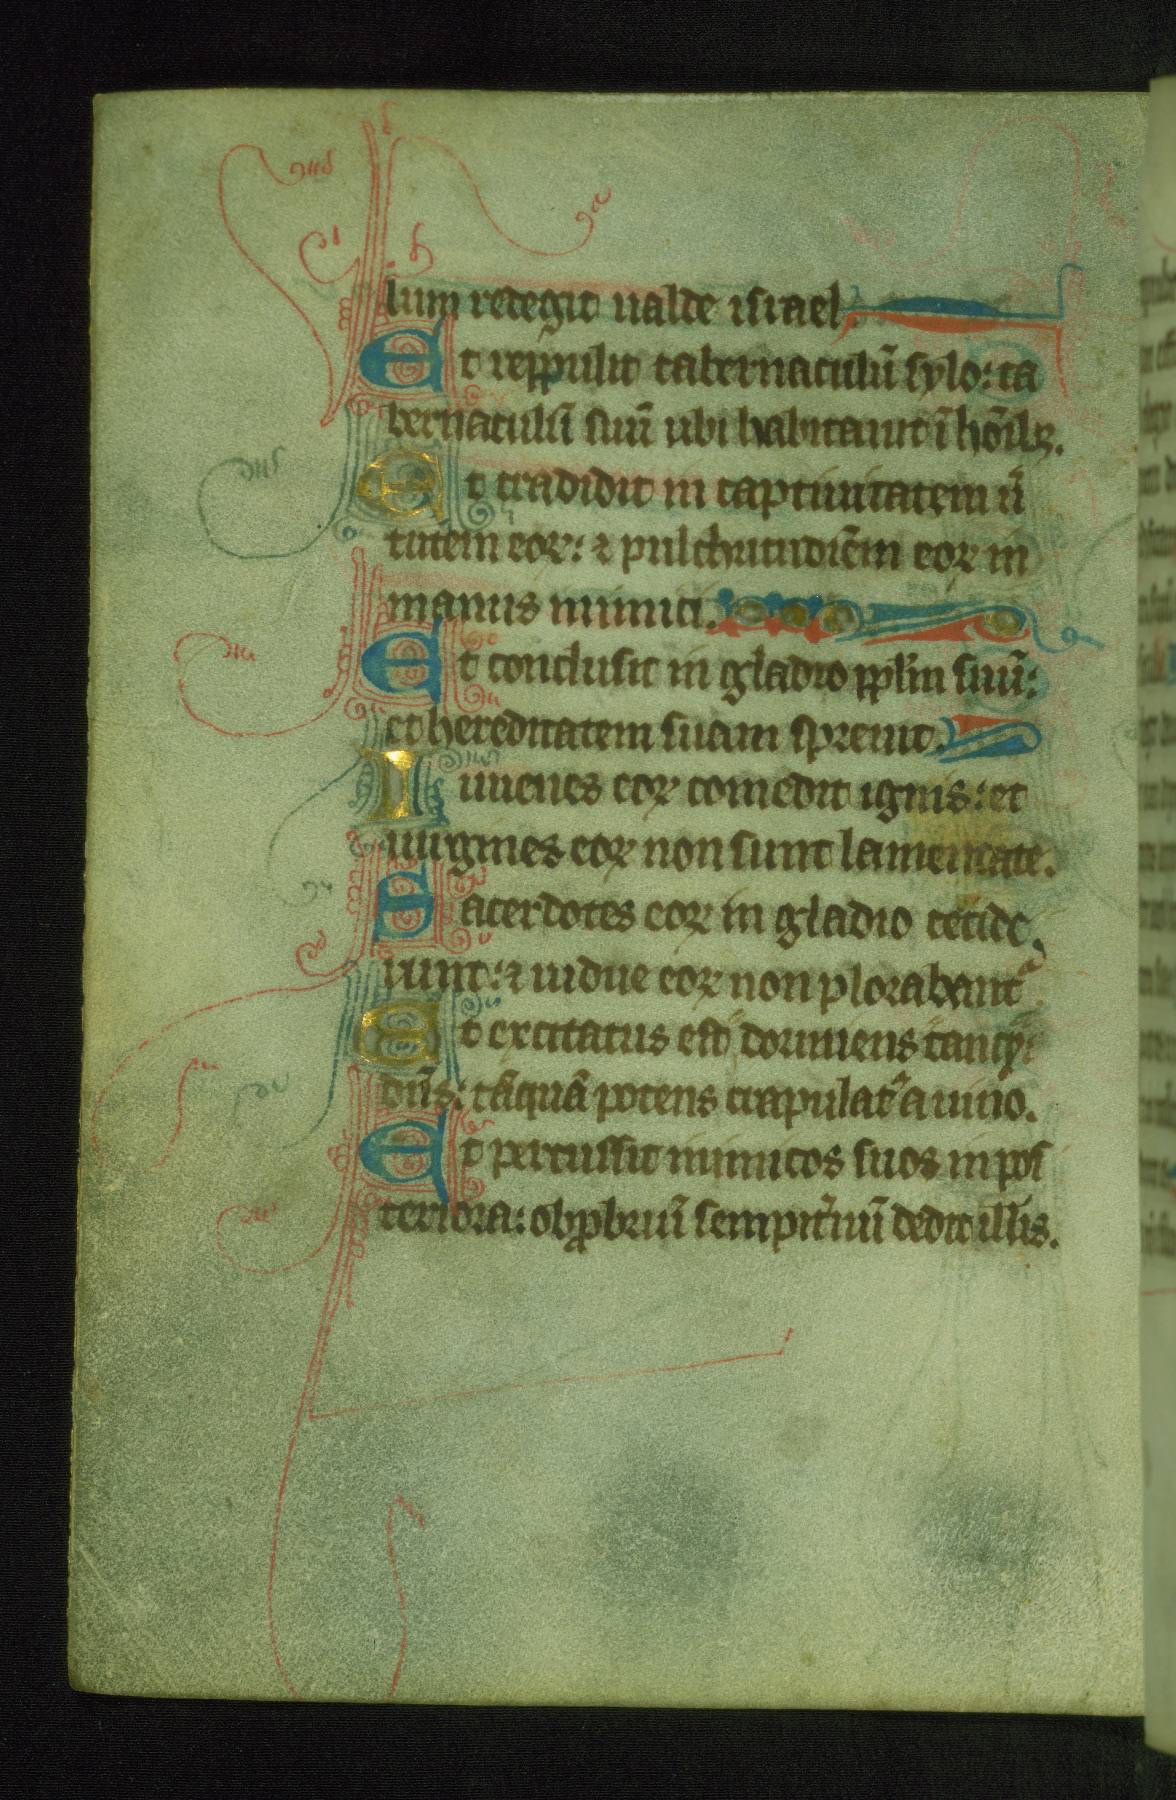 lum redegit ualde israel
Et reppulit tabernaculū sylo: ta
bernaculū suū ubi habitauit ī hōibꝫ.
Et tradidit in captiuitatem uī
tutem eoꝝ: ⁊ pulchritudinē eoꝝ in
manus inimici.
Et conclusit in gladio pplm suū:
et hereditatem suam spreuit.
Iuuenes eoꝝ comedit ignis: et
uirgines eoꝝ non sunt lamentate.
Sacerdotes eoꝝ in gladio cecide
runt: ⁊ uidue eoꝝ non plorabant
Et excitatus est dormiens tanqͣ
dn̄s: tāquā potens crapulatꝰ a uino.
Et percussit inimicos suos in pos
teriora: obꝓbriū sempit̄nū dedit illis.